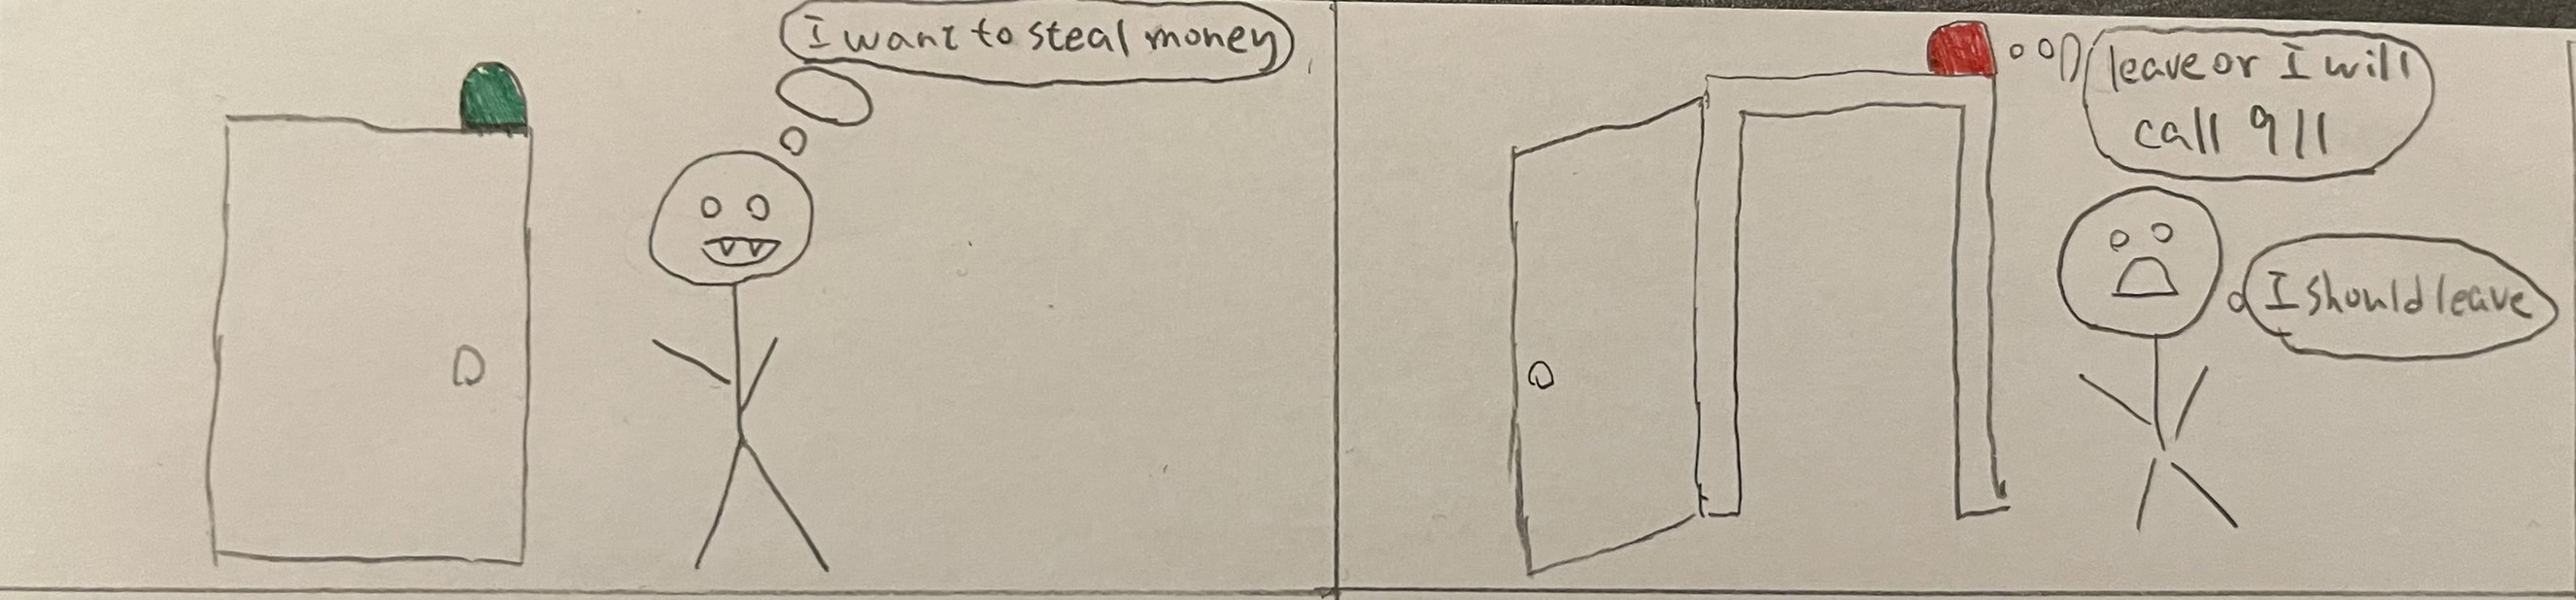 I want to steal money
leave or I will
call 911
I should leave